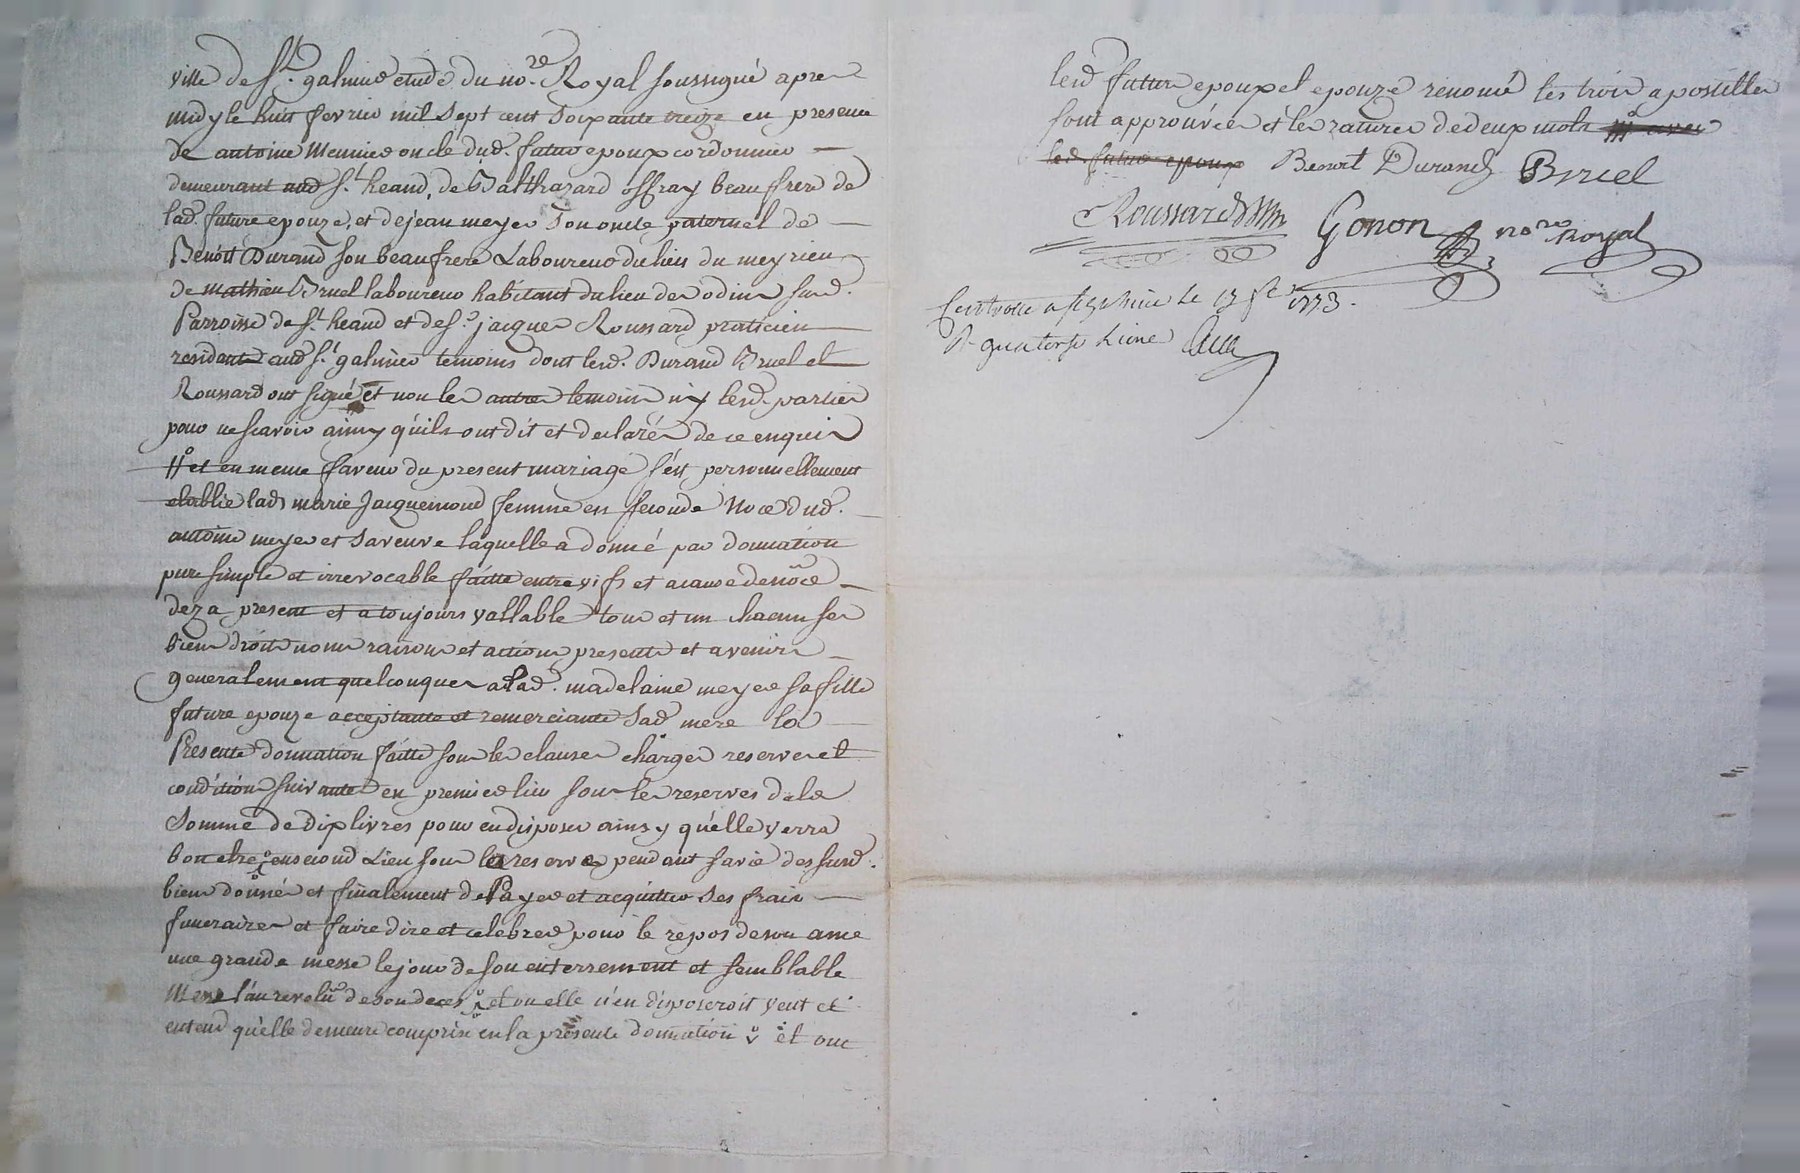 ville de St. galmier etude du no.re Royal soussigné apres
midy le huit fevrier mil sept cent soixante treize en presence
de antoine Meunier oncle dud. futur epoux cordonnier
demeurant aud St. heand, de Balthazard offray beaufrere de
lad. future epouze, et de jean meyer son oncle paternel de
Benoit Durand son beaufrere Laboureur du lieu du meyrieu
de mathieu Bruel laboureur habitant du lieu des odins sud.
Parroisse de St. heand et de Sr. jacques Roussard praticien
residant aud St. galmier temoins dont lesd. Durand Bruel et
Roussard ont signé et non les autres temoins ny lesd. parties
pour ne scavoir ainsy qu'ils ont dit et declarés de ce enquis
et en meme faveur du present mariage s'est personnellement
etablie lad. marie Jacquemond femme en seconde Noce dud.
antoine meyer et sa veuve laquelle a donné par donnation
pure simple et irrevocable faitte entre vifs et a cause de noce
dez a present et a toujours vallable tous et un chacun ses
biens droits noms raisons et actions presents et avenirs
generalement quelconques a lad. madelaine meyer sa fille
future epouze acceptante et remerciante sad mere la
Presente donnation faitte sous les clauses charges reserves et
conditions suivantes en premier lieu sous les reserves de la
Somme de Dix livres pour en disposer ainsy qu'elle verra
bon etre, en second Lieu sous la reserve pendant sa vie des susd.
biens donnés et finalement de Payer et acquitter ses frais
funeraires et faire dire et celebrer pour le repos de son ame
une grande messe le jour de son enterrement et semblable
Messe l'an revolu de son deces, et ou elle n'en disposeroit veut et
entend qu'elle demeure comprise en la presente donnation et ont
lesd. futurs epoux et epouze renoncé les trois apostilles
sont approuvées et les ratures de deux mots avec
led. futur epoux Benoit Durand Bruel
Roussard Gonon no.re Royal
Controllé a St galmier le 1773.
R. quatorze Livres